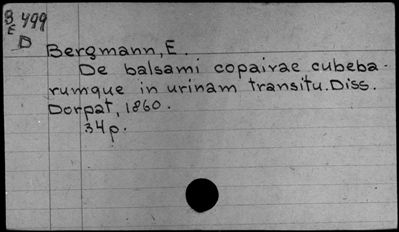 8 499
E
D
Bergmann, E.
De balsami copaivae cubeba-
rumque in urinam transitu. Diss.
Dorpat, 1860.
34p.